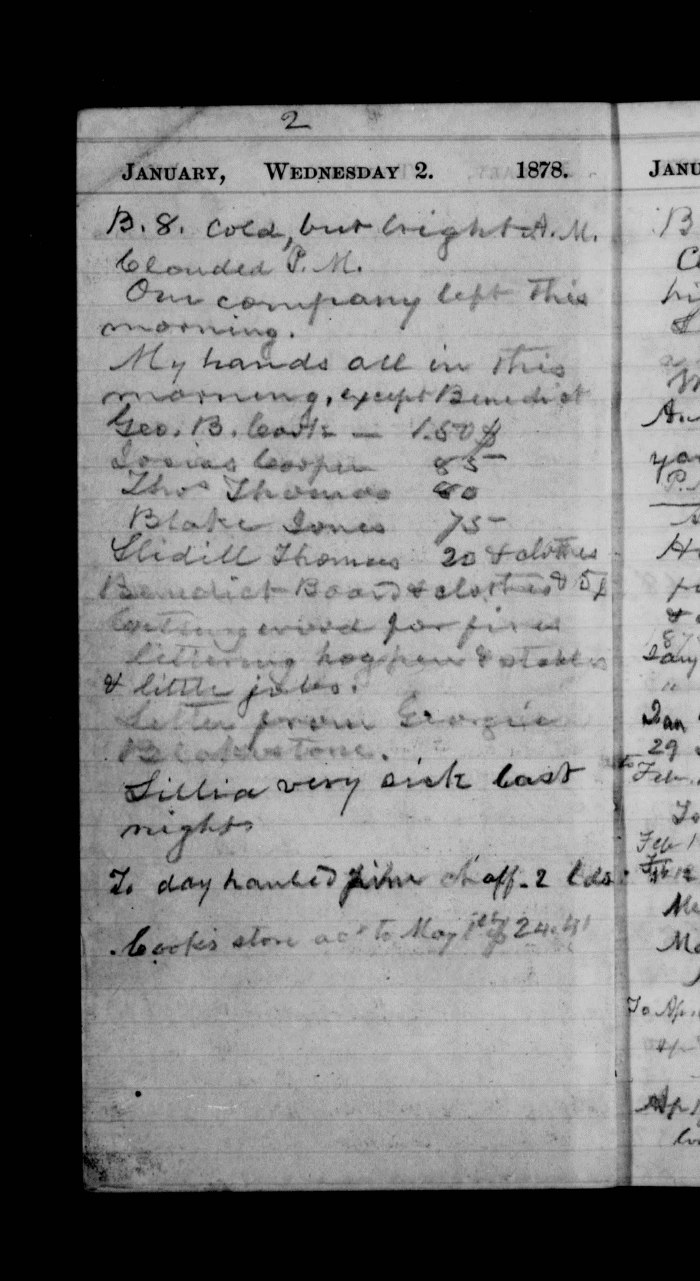 2
JANUARY, WEDNESDAY 2. 1878.
B. 8. Cold, but bright A.M.
Clouded P.M.
Our company left this
morning.
My hands all in this
morning, except Benedict
Geo. B. Cook — 1.50 $
Josias Cooper 85
Thos Thomas 80
Blake Jones 75
Slidill Thomas 20 & clothes
Benedict Board & clothes & 5$
Cutting wood for fires
littering hogpen & stables
& little jobs.
Letter from Georgie
Blakistone.
Lillia very sick last
night
To day hauled pine chaff. 2 lds.
Cook's store act to May 1st $ 24.41
JANU
B
hi
A.
P.
H
&
Jan
29
Feb.
To
Feb 1
Me
Ma
To Apr.
Ap